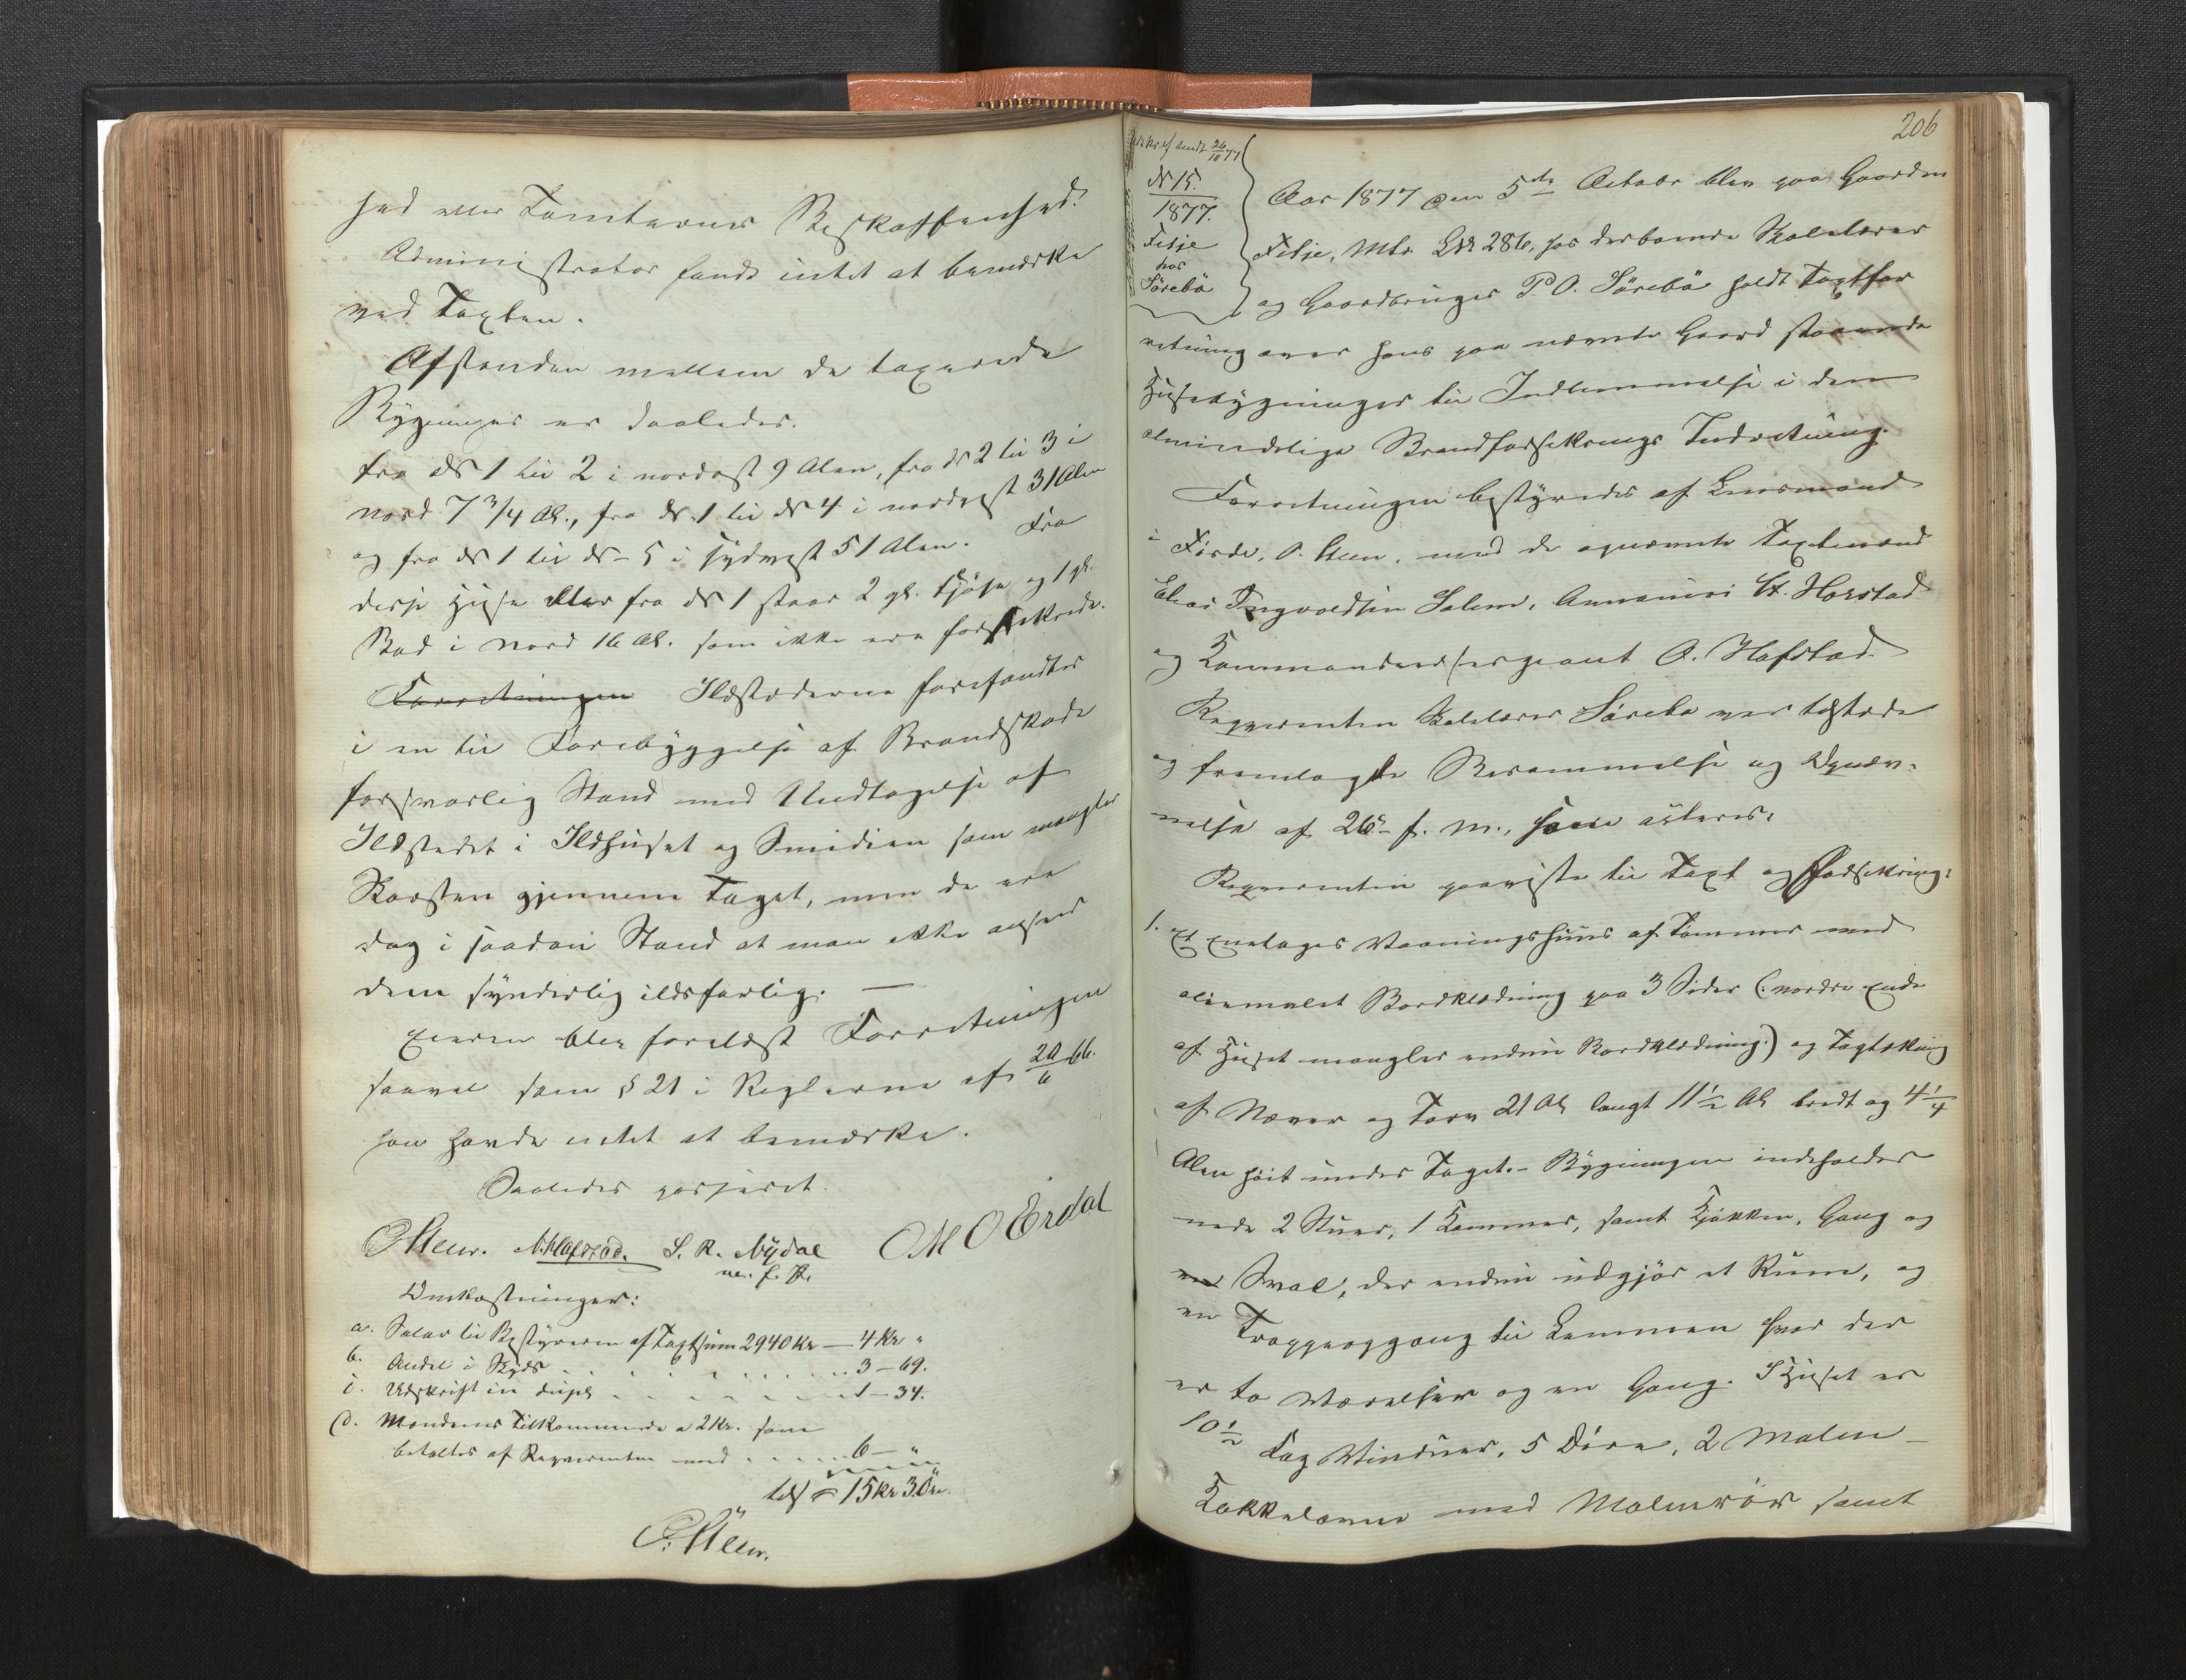 hed eller Tomternes Beskaffenhed.
Administrator fandt intet at bemærke
ved Taxten.
Afstanden mellem de taxerede
Bygninger er saaledes.
fra № 1 til 2 i nordost 9 Alen, fra № 2 til 3 i
nord 7 3/4 Al., fra № 1 til № 4 i nordvest 31 Alen
og fra № 1 til № 5 i sydvest 51 Alen. Fra
disse Huse eller fra № 1 staar 2 gl. Fjøse og 1 gl.
Bod i Nord 16 Al. som ikke ere forsikrede.
Forretningen Ildstederne forefandtes
i en til Forebyggelse af Brandskade
forsvarlig Stand med Undtagelse af
Ildstedet i Ildhuset og Smidien som mangler
Skorsten gjennem Taget, men de ere
dog i saadan Stand at man ikke anseer
dem synderlig ildsfarlig. —
Eieren blev forelæst Forretningen
saavel som § 21 i Reglerne af 20/6 66.
han havde intet at bemærke.
Saaledes passeret.
O Steen. A. Hafstad. S. R. Nydal O M O Erdal
m. f. P.
Omkostninger:
a. Salar til Bestyreren af Taxtsum 2940 Kr — 4 Kr "
b. Andel i Skyds . . . . . . . 3 – 69.
c. Udskrift in dupl . . . . . . . 1 – 34.
d. Mændenes Tilkommende a 2 Kr. som
betales af Reqvirenten med . . . . . 6 – "
tils = 15 Kr 3 Øre.
O. Steen.
206
Udskrift sendt 26/10 77
№ 15.
1877.
Fitje
hos
Sörebö
Aar 1877 den 5te October blev paa Gaarden
Fitje, Mtr. L№ 286, hos derboende Skolelærer
og Gaardbruger P. O. Sörebö holdt Taxtfor
retning over hans paa nævnte Gaard staaende
Husebygninger til Indlemmelse i den
almindelige Brandforsikrings Indretning.
Forretningen bestyredes af Lensmand
i Førde, O. Steen, med de opnævnte Taxtmænd
Elias Ingvoldsen Solem, Anmeier St. Horstad
og Kommandeersergeant A. Hafstad.
Reqvirenten Skolelærer Sörebö var tilstede
og fremlagde Berammelse og Opnæv-
nelse af 26de f. M., som acteres.
Reqvirenten paaviste til Taxt og Forsikring:
1. Et Enetages Vaaningshuus af Tømmer med
oliemalet Bordklædning paa 3 Sider (: nordre Ende
af Huset mangler endnu Bordklædning) og Tagtækning
af Næver og Torv 21 Al. langt 11 1/2 Al bredt og 4 1/4
Alen høit under Taget. – Bygningen indeholder
nede 2 Stuer, 1 Kammer, samt Kjøkken, Gang og
en Sval, der endnu udgjør et Rum, og
en Trappeopgang til Lemmen hvor der
er to Værelser og en Gang. I Huset er
10 1/2 Fag Vinduer, 5 Døre, 2 Malm –
Kakkelovne med Malmrør samt